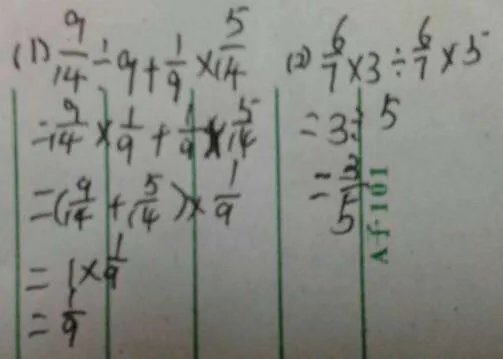 (1) 9/14 ÷ 9 + 1/9 × 5/14
= 9/14 × 1/9 + 1/9 × 5/14
= (9/14 + 5/14) × 1/9
= 1 × 1/9
= 1/9
(2) 6/7 × 3 ÷ 6/7 × 5
= 3 ÷ 5
= 3/5
A-f-101